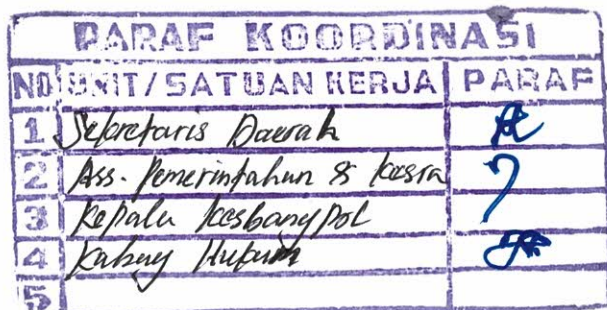 PARAF KOORDINASI
NO UNIT/SATUAN KERJA PARAF
1 Sekretaris Daerah
2 Ass. Pemerintahan & kesra
3 Kepala kesbangpol
4 Kabag Hukum
5